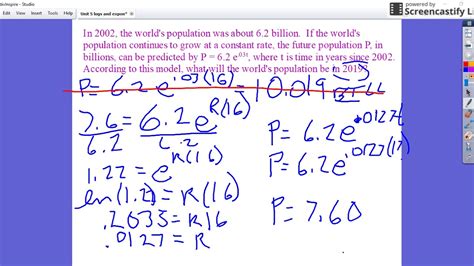 Unit 5 logs and expon* - Studio
powered by
Screencastify L
In 2002, the world's population was about 6.2 billion. If the world's
population continues to grow at a constant rate, the future population P, in
billions, can be predicted by P = 6.2 e^.03t, where t is time in years since 2002.
According to this model, what will the world's population be in 2019?
P= 6.2e^.03(16) = 10.019
7.6 = 6.2e^R(16)
6.2 6.2
1.22 = e^R(16)
ln(1.2)= R(16)
.2035= R16
.0127 = R
P= 6.2e^.0127t
P= 6.2e
P= 7.60